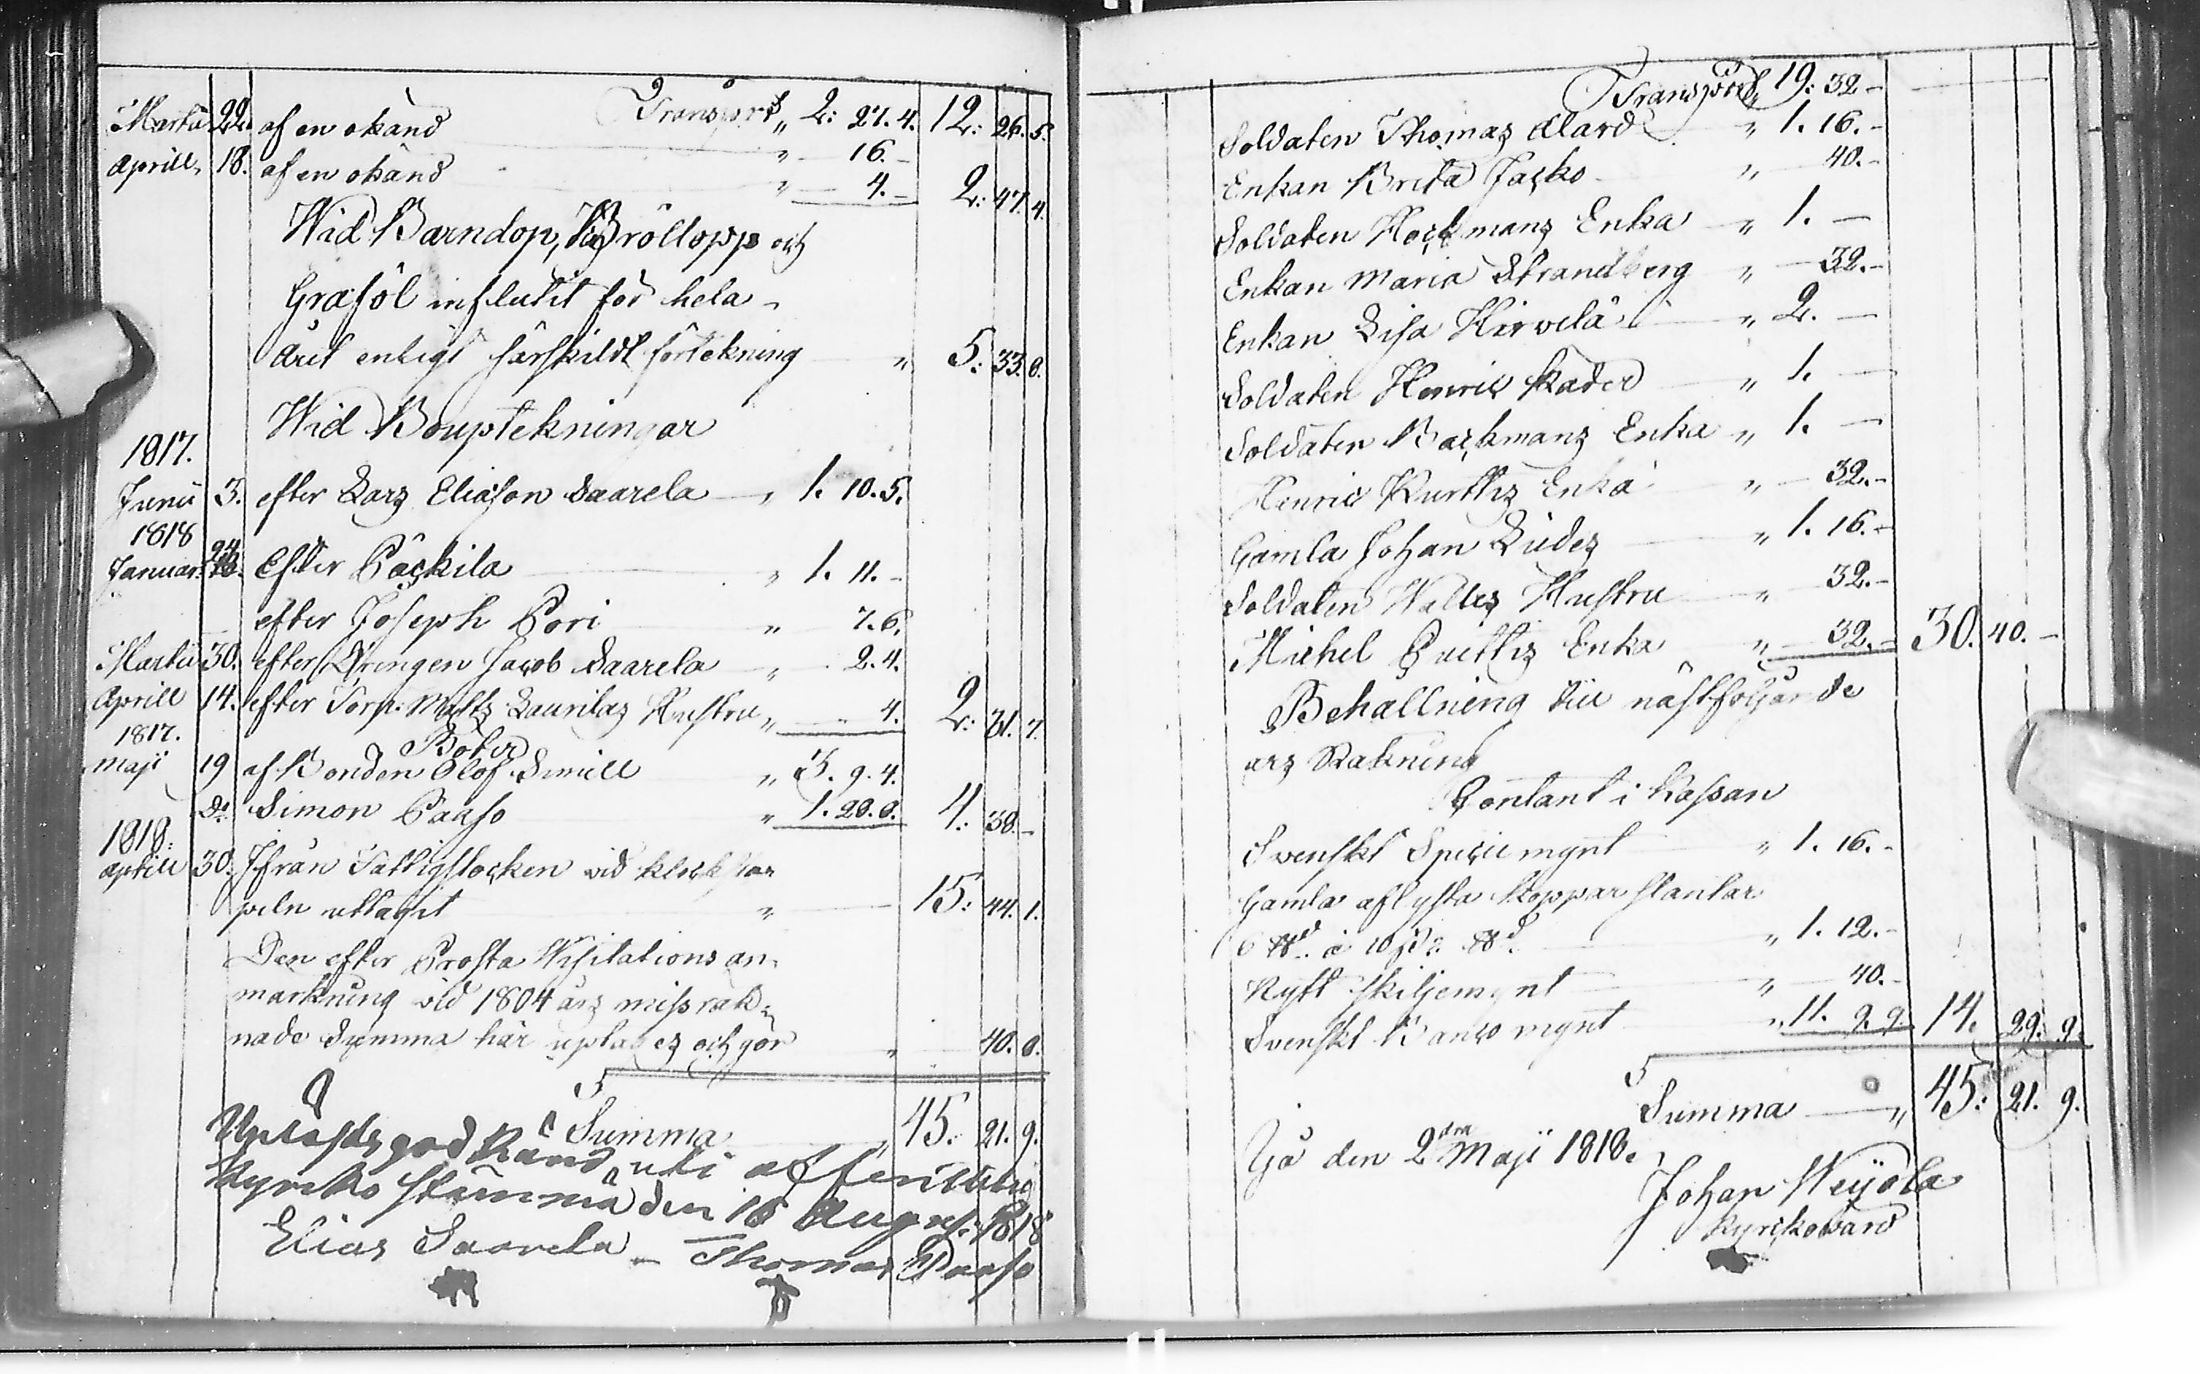 Transport „ 2: 27. 4. 12: 26. 5.
Martii 22. af en okänd „ — 16. —
Aprill 18. af en okänd „ — 4. — 2: 47. 4.
Wid Barndop, Bröllopp och
Grafföl influtit för hela
Året enligt särskildt förtekning „ 5: 33. 8.
Wid Bouptekningar
1817.
Junii 3. efter Lars Eliason Saarela „ 1. 10. 5.
1818
Januar. 24. Efter Päckila „ 1. 11. —
efter Joseph Pori „ 7. 6.
Martii 30. efter Drengen Jacob Saarela „ 2. 4.
Aprill 14. efter Torp. Matts Laurilas Hustru „ 4. 2: 31. 7.
1817. Böter
Maji 19 af Bonden Olof Simill „ 3. 9. 4.
Do. Simon Paaso „ 1. 28. 8. 4: 38. —
1818.
Aprill 30. Ifrån Fattigstocken vid klocksta-
peln uttagit „ 15: 44. 1.
Den efter Prosta Visitations an-
märkning vid 1804 års missräk-
nade Summa här uptages och gör „ 40. 8.
Summa „ 45. 21. 9.
Uplästes godkänd uti offentlig
Kyrcko stämma den 16 August 1818
Elias Saarela — Thomas Paaso
Transport „ 19: 32 —
Soldaten Thomas Alard „ 1. 16. —
Enkan Brita Jacko „ 40. —
Soldaten Hockmans Enka „ 1. —
Enkan Maria Strandberg „ — 32. —
Enkan Lisa Hirvelä „ 2. —
Soldaten Henric Rader „ 1. —
Soldaten Backmans Enka „ 1. —
Henric Kurttis Enka „ — 32. —
Gamla Johan Lüdes „ 1. 16. —
Soldaten Walles Hustru „ 32. —
Michel Puittis Enka „ — 32. — 30. 40. —
Behållning till nästföljande
års Räkning
Contant i Kassan
Svenskt Specie mynt „ 1. 16. —
Gamla aflysta koppar slantar
6 à 10 „ 1. 12. —
Rysk skiljemynt „ — 40. —
Svenskt Banco mynt „ 11. 9. 9. 14. 29. 9.
Summa — „ 45: 21. 9.
Ijå den 2dra Maji 1818.
Johan Weijola
Kyrckovärd